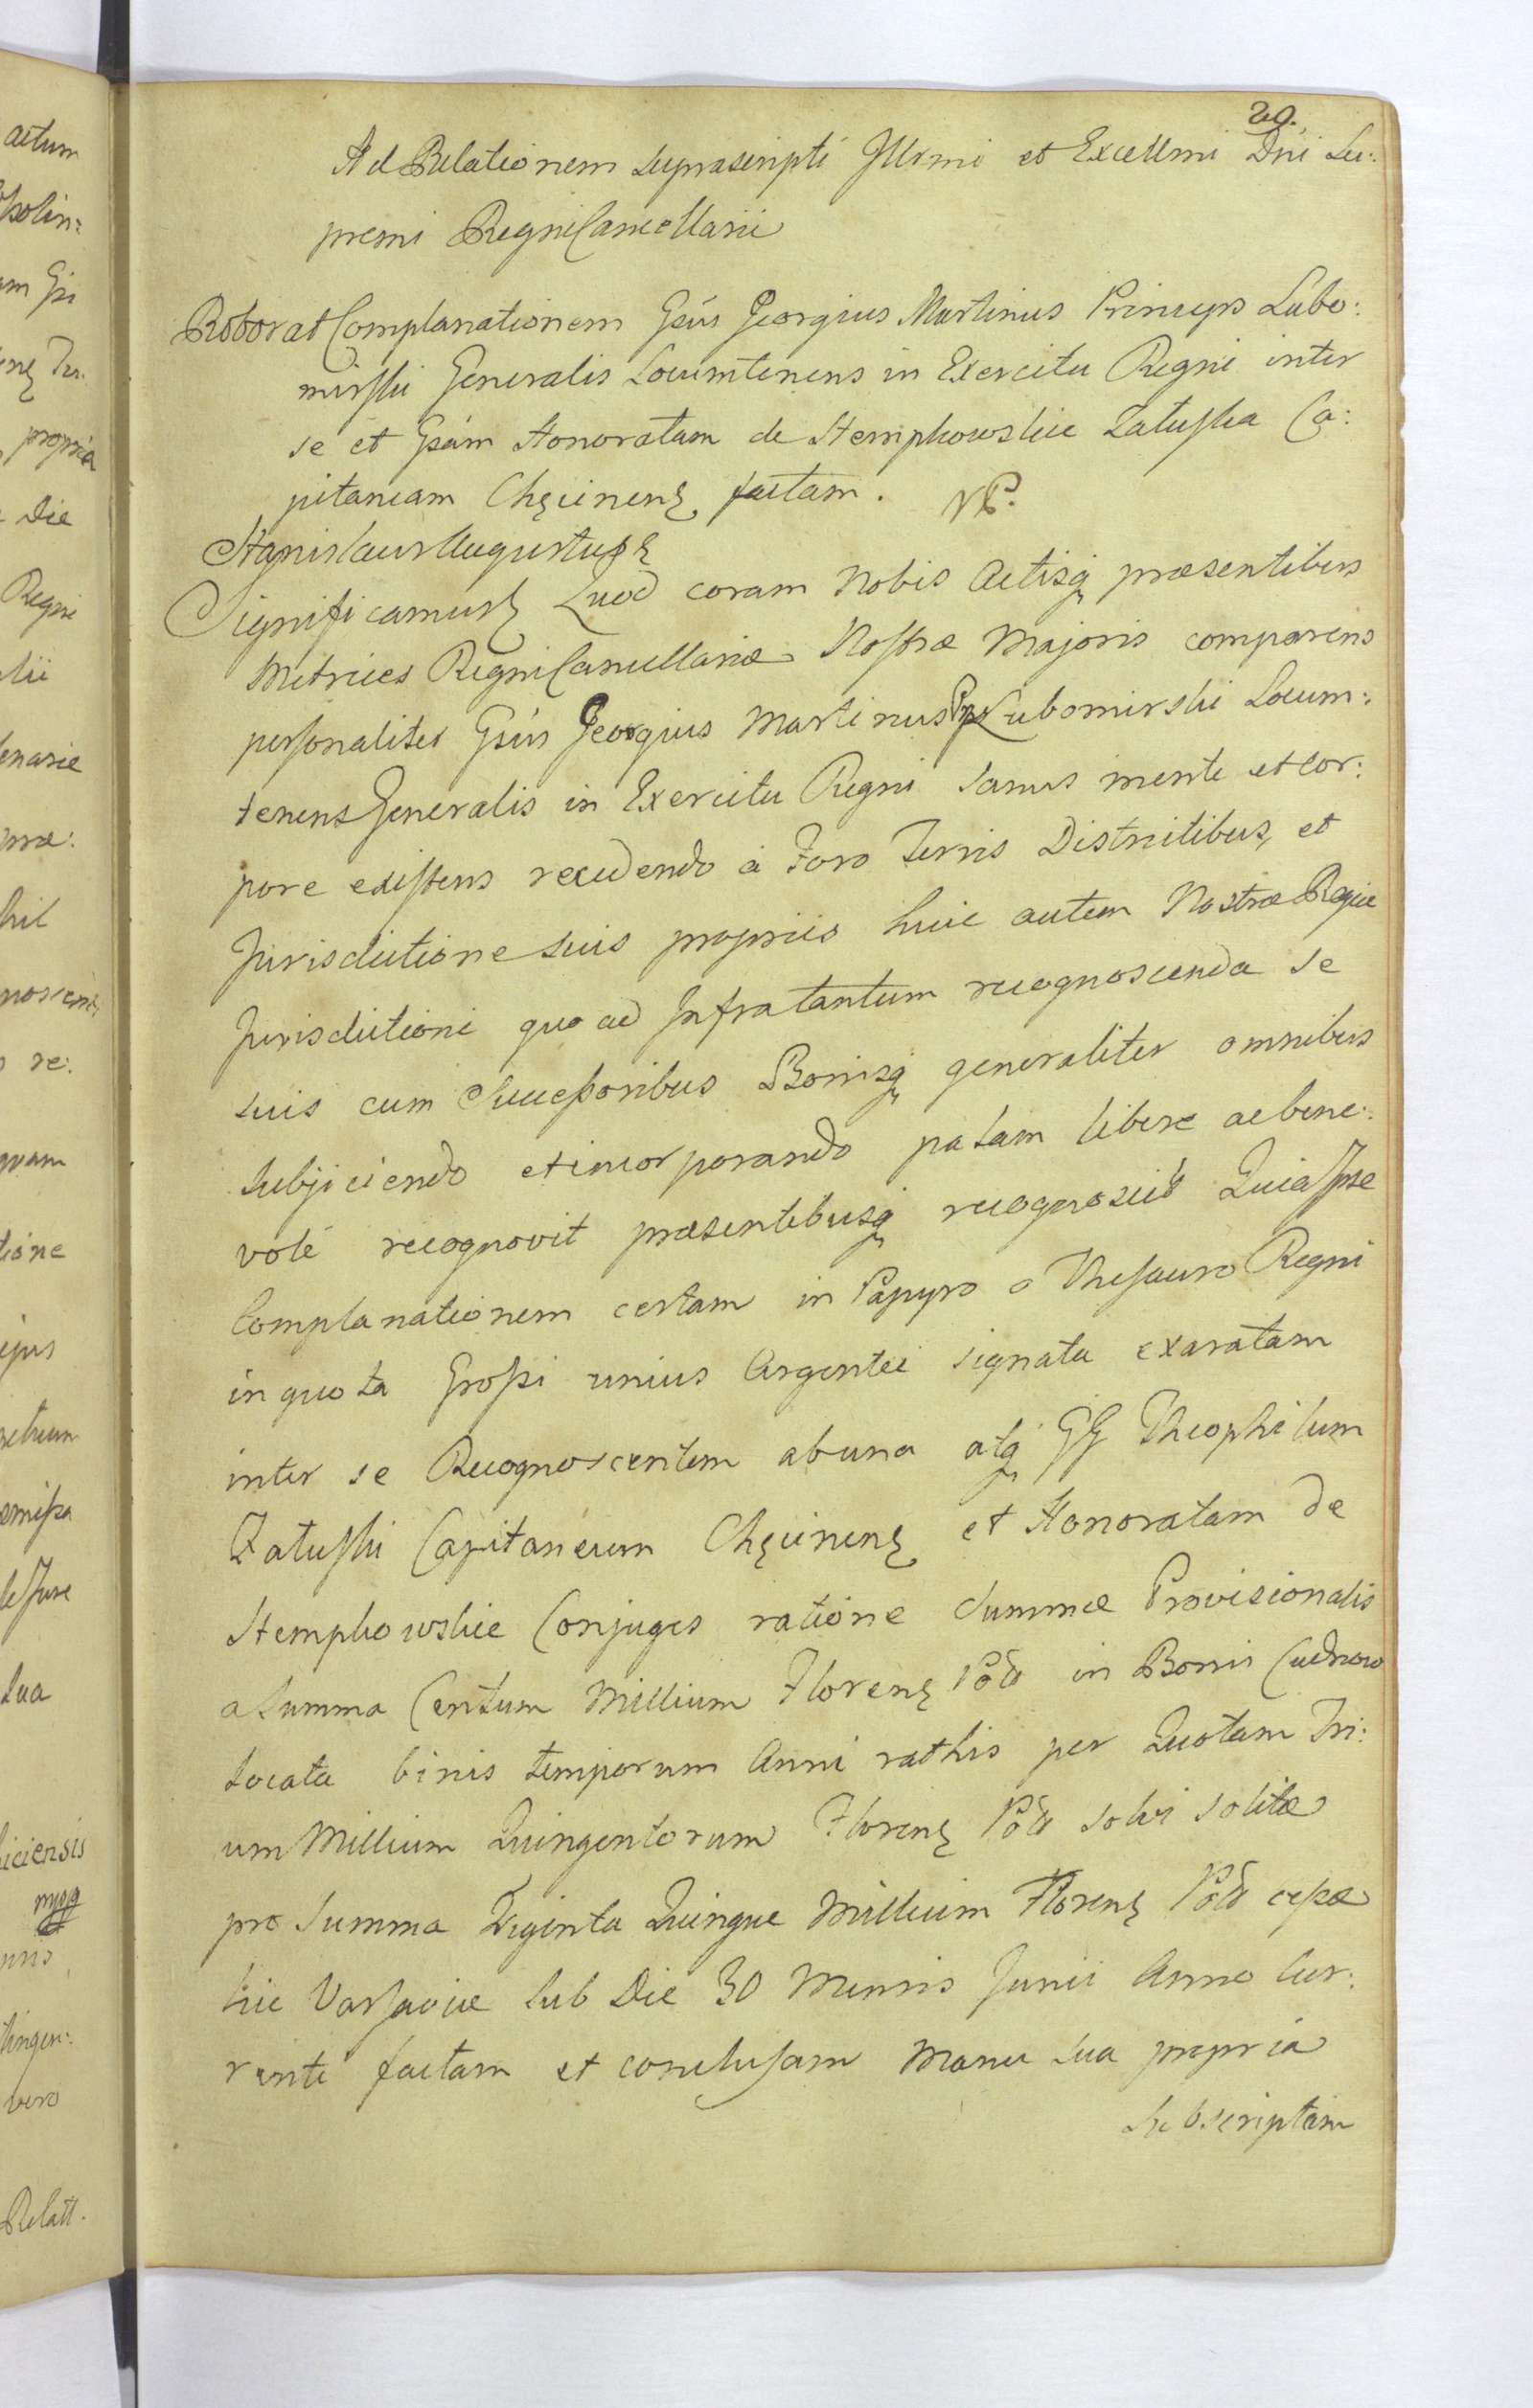 20.
Ad Relationem Suprascripti Illrmi et Excellmi Dni Su:
premi Regni Cancellarii
Roborat Complanationem Gsūs Georgius Martinus Princeps Lubo:
mirski Generalis Locumtenens in Exercitu Regni inter
se et Gsām Honoratam de Stempkowskie Załuska Ca:
pitaneam Chęcinenȩ factam.
Stanislaus Augustus ȩ
Significamusȩ Quod coram Nobis Actisq̨ præsentibus
Metrices Regni Cancellariæ Nostræ Majoris comparens
personaliter Gsūs Georgius Martinus Pnps Lubomirski Locum:
tenens Generalis in Exercitu Regni sanus mente et cor:
pore existens recedendo à Foro Terris Districtibus, et
Jurisdictione suis propriis huic autem Nostræ Regiæ
Jurisdictioni quo ad Infratantum recognoscenda se
suis cum Successoribus Bonisq̨ generaliter omnibus
subjiciendo et incorporando palam libere ac bene:
volé recognovit præsentibusq̨ recognoscit Quia Ipse
Complanationem certam in Papyro a Thesauro Regni
in quota Grossi unius Argentei signata exaratam
inter se Recognoscentem ab una atq̨ GG Theophilum
Załuski Capitaneum Chęcinenȩ et Honoratam de
Stempkowskie Conjuges ratione Summæ Provisionalis
a Summa Centum Millium Florenȩ Poł in Bonis Cudnow
locata binis temporum Anni rathis per Quotam Tri:
um Millium Quingentorum Florenȩ Poł solvi solitæ
pro Summa Triginta Quinque Millium Florenȩ Poł cessæ
hic Varsaviæ sub Die 30 Mensis Junii Anno Cur:
rente factam et conclusam Manu sua propria
subscriptam